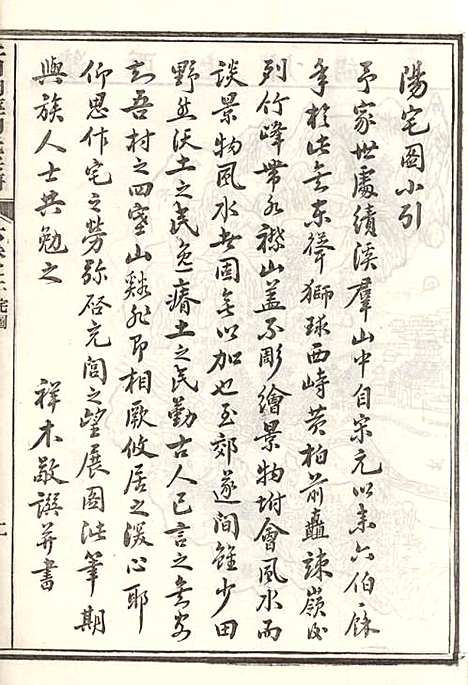 陽宅圖小引
予家世處績溪羣山中自宋元以来六伯餘
年於此矣東聳獅球西峙黄柏前矗竦嶺後
列竹峰帶水襟山蓋不彫繪景物坿會風水而
談景物風水者固無以加也至郊遂間雖少田
野然沃土之民逸瘠土之民勤古人已言之矣安
知吾村之四塞山谿非即相厥攸居之深心耶
仰思作宅之勞弥啓亢閭之望展圖泚筆期
與族人士共勉之
祥木敬譔并書
宅圖